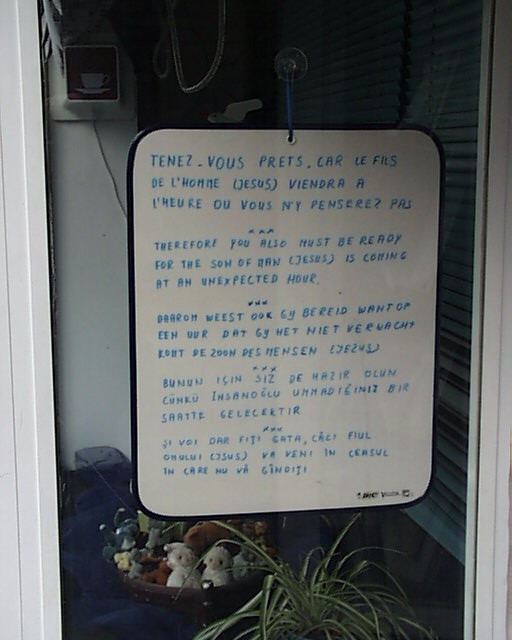 TENEZ-VOUS PRETS, CAR LE FILS
DE L'HOMME (JESUS) VIENDRA A
L'HEURE OU VOUS N'Y PENSEREZ PAS
xxx
THEREFORE YOU ALSO MUST BE READY
FOR THE SON OF MAN (JESUS) IS COMING
AT AN UNEXPECTED HOUR.
xxx
DAAROM WEEST OOK GY BEREID WANT OP
EEN UUR DAT GY HET NIET VERWACHT
KOMT DE ZOON DES MENSEN (JEZUS)
xxx
BUNUN IÇIN SIZ DE HAZIR OLUN
ÇÜNKÜ INSANOĞLU UMMADIĞINIZ BIR
SAATTE GELECEKTIR
xxx
ŞI VOI DAR FIŢI GATA, CĂCI FIUL
OMULUI (ISUS) VA VENI ÎN CEASUL
ÎN CARE NU VĂ GÎNDIŢI